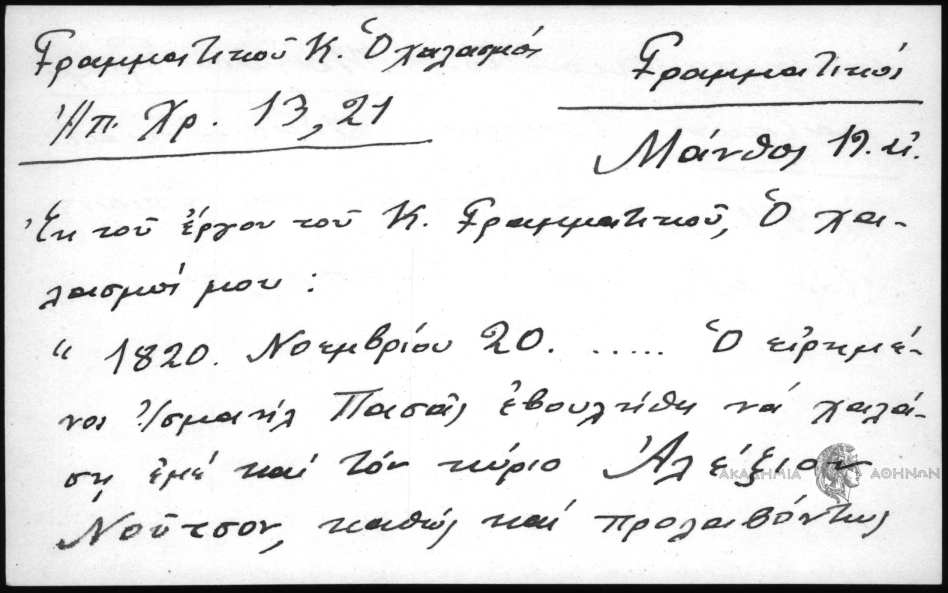 Γραμματικοῦ Κ. Ὁ χαλασμός
Ἠπ. Χρ. 13, 21
Γραμματικός
Μάνθος 19. αἰ.
Ἐκ τοῦ ἔργου τοῦ Κ. Γραμματικοῦ, Ὁ χα-
λασμός μου :
" 1820. Νοεμβρίου 20. ..... Ὁ εἰρημέ-
νος Ἰσμαήλ Πασᾶς ἐβουλήθη νά χαλά-
σῃ ἐμέ καί τόν κύριο Ἀλέξιον
Νοῦτσον, καθώς καί προλαβόντως
ΑΚΑΔΗΜΙΑ ΑΘΗΝΩΝ